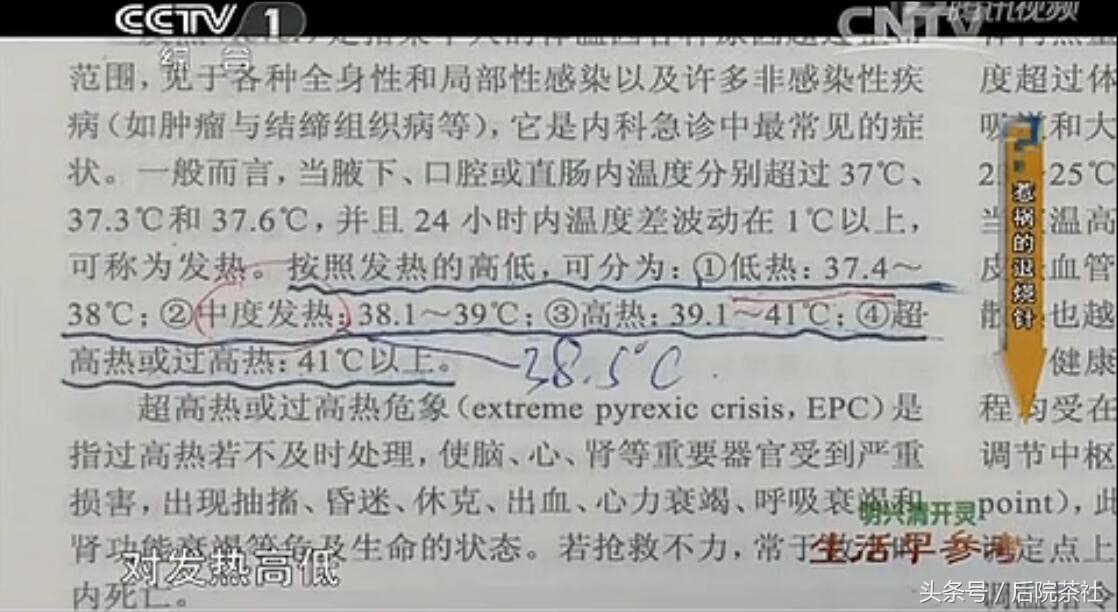 CCTV 1
综合
CNTV
腾讯视频
范围,见于各种全身性和局部性感染以及许多非感染性疾
病(如肿瘤与结缔组织病等),它是内科急诊中最常见的症
状。一般而言,当腋下、口腔或直肠内温度分别超过 37℃、
37.3℃和 37.6℃,并且 24 小时内温度差波动在 1℃以上,
可称为发热。按照发热的高低,可分为:①低热:37.4~
38℃;②中度发热:38.1~39℃;③高热:39.1~41℃;④超
高热或过高热:41℃以上。
38.5°C
超高热或过高热危象(extreme pyrexic crisis,EPC)是
指过高热若不及时处理,使脑、心、肾等重要器官受到严重
损害,出现抽搐、昏迷、休克、出血、心力衰竭、呼吸衰竭和
肾功能衰竭等危及生命的状态。若抢救不力,常于
内死亡。
度超过体
和大
25℃
温高
血管
也越
健康
程均受在
调节中枢
point),此
定点上
惹祸的退烧针
明兴清开灵
生活早参考
对发热高低
头条号 / 后院茶社